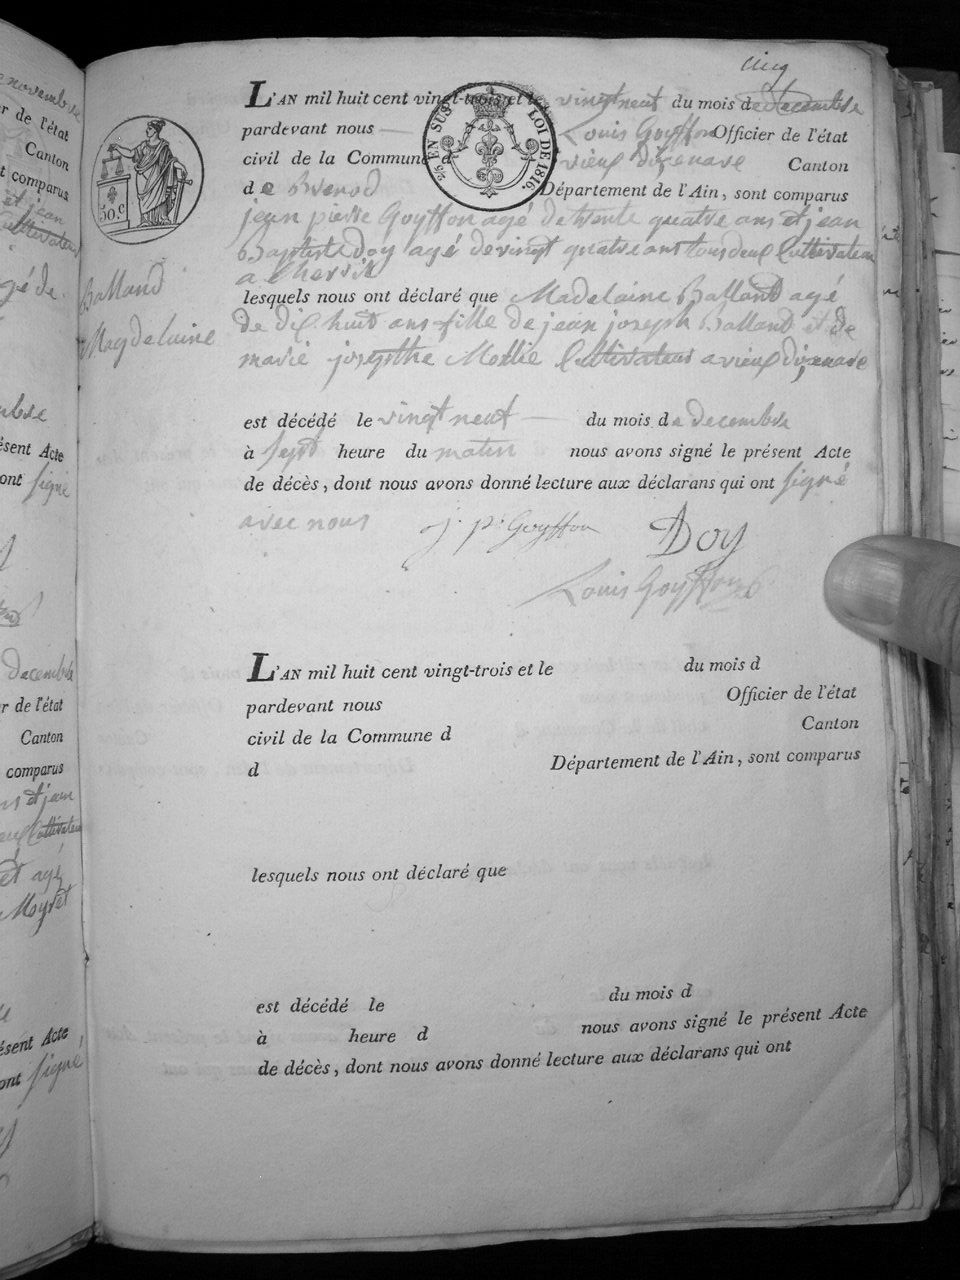 novembre
er de l'état
Canton
nt comparus
et jean
Cultivateurs
agé de
decembre
résent Acte
ont signé
decembre
er de l'état
Canton
comparus
et jean
Cultivateurs
et agé
Moyret
résent Acte
ont signé
cinq
50.c
2/5 EN SUS
LOI DE 1816
L'AN mil huit cent vingt-trois et le vingt neuf du mois de decembre
pardevant nous — Louis Goyffon Officier de l'état
civil de la Commune de vieux dizenave Canton
de Brenod Département de l'Ain, sont comparus
jean pierre Goyffon agé de trente quatre ans et jean
Baptiste Doy agé de vingt quatre ans tous deux Cultivateur
a
Balland
Magdelaine
lesquels nous ont déclaré que Madelaine Balland agé
de dix huit ans fille de jean joseph Balland et de
marie josepthe Mollie Cultivateurs a vieux dizenave
est décédé le vingt neuf — du mois de decembre
à sept heure du matin nous avons signé le présent Acte
de décès, dont nous avons donné lecture aux déclarans qui ont signé
avec nous j. p. Goyffon Doy
Louis Goyffon
L'AN mil huit cent vingt-trois et le du mois d
pardevant nous Officier de l'état
civil de la Commune d Canton
d Département de l'Ain, sont comparus
lesquels nous ont déclaré que
est décédé le du mois d
à heure d nous avons signé le présent Acte
de décès, dont nous avons donné lecture aux déclarans qui ont